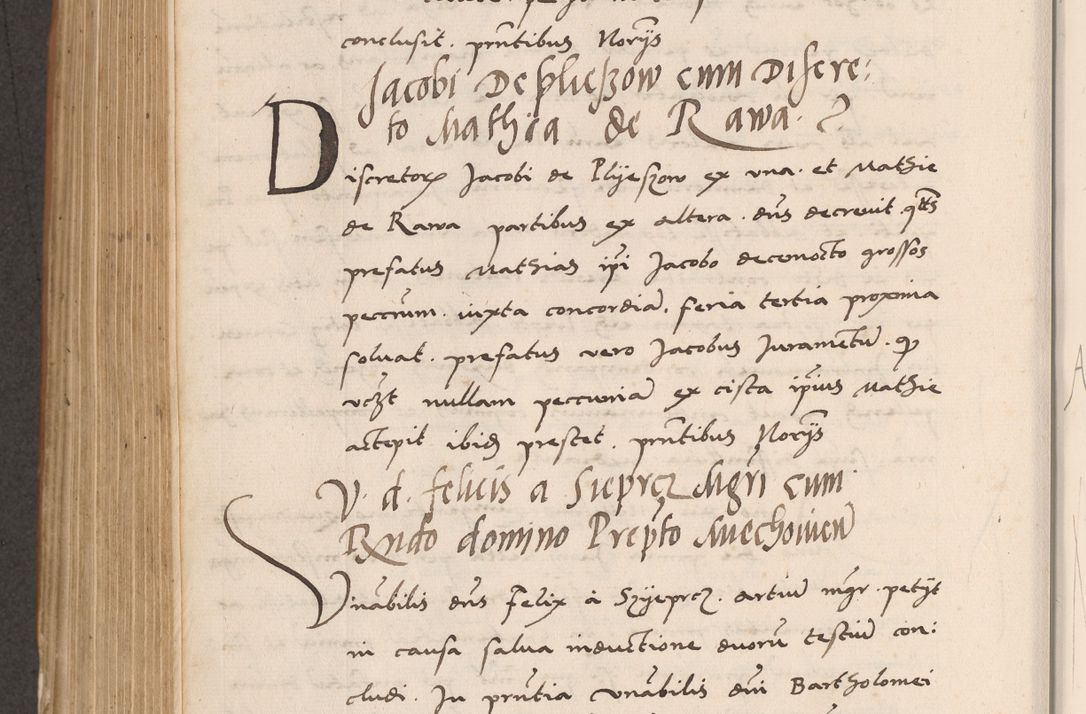 conclusit. pr̃ntibus Norÿs
Jacobi De plieszow cum Discre:
to Mathia de Rawa
Discretorꝝ Jacobi de Plÿeszow ex vna. et Mathie
de Rawa partibus ex altera. dn̄s decrevit qt̃s
prefatus Mathias ip̄i Jacobo decemocto grossos
peccu̅m. iuxta concordiā. feria tertia proxima
soluat. prefatus vero Jacobus Juramentū. ꝙ
vcꝫt nullam peccuniā ex cista ip̄ius Mathie
accepit ibidꝫ prestet. pr̃ntibus Norÿs
V. d. felicis a Sieprcz Mgr̄i cum
Rn̄do domino Prep̄to Miechowien̄
Vn̄abilis dn̄s Felix a Szÿeprcz. artiū mg̃r. petÿt
in causa salua inductione duorū testiū con:
cludi. In pr̃ntia vn̄abilis dn̄i Bartholomei